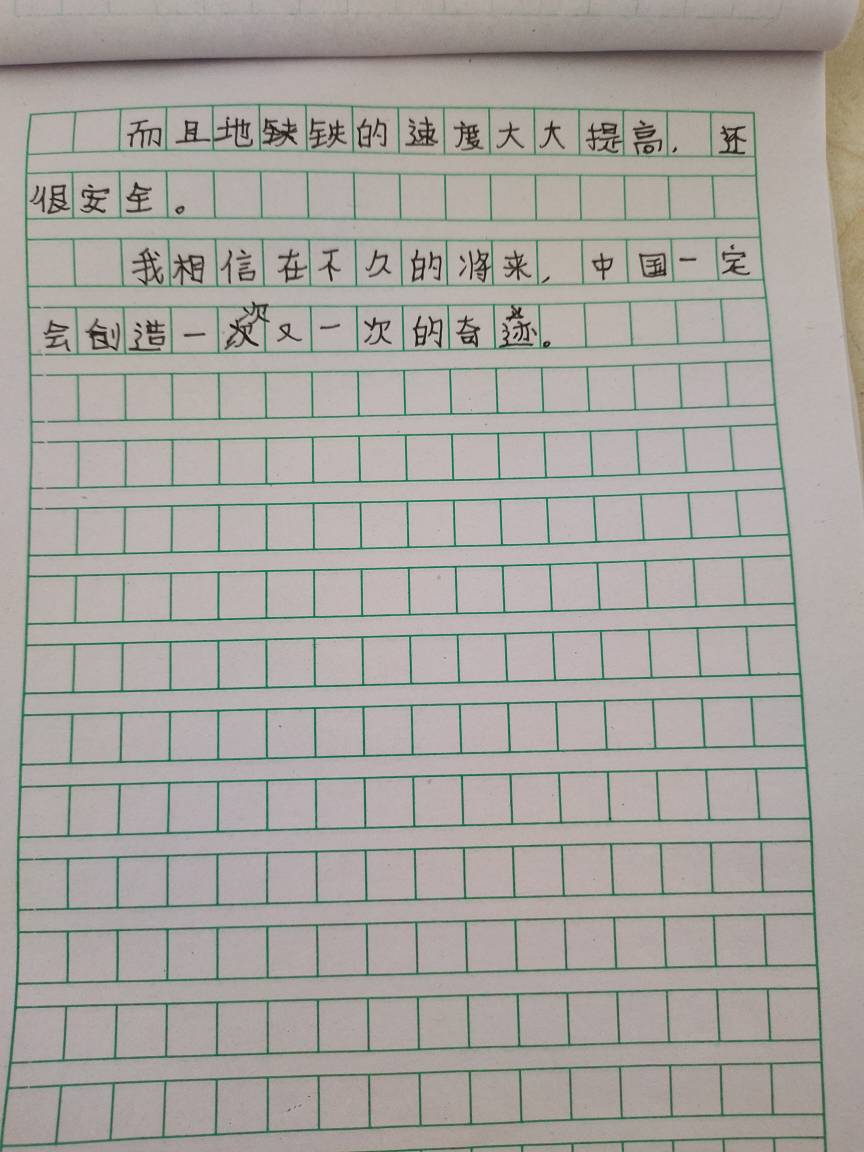 而且地铁的速度大大提高，还
很安全。
我相信在不久的将来，中国一定
会创造一次又一次的奇迹。